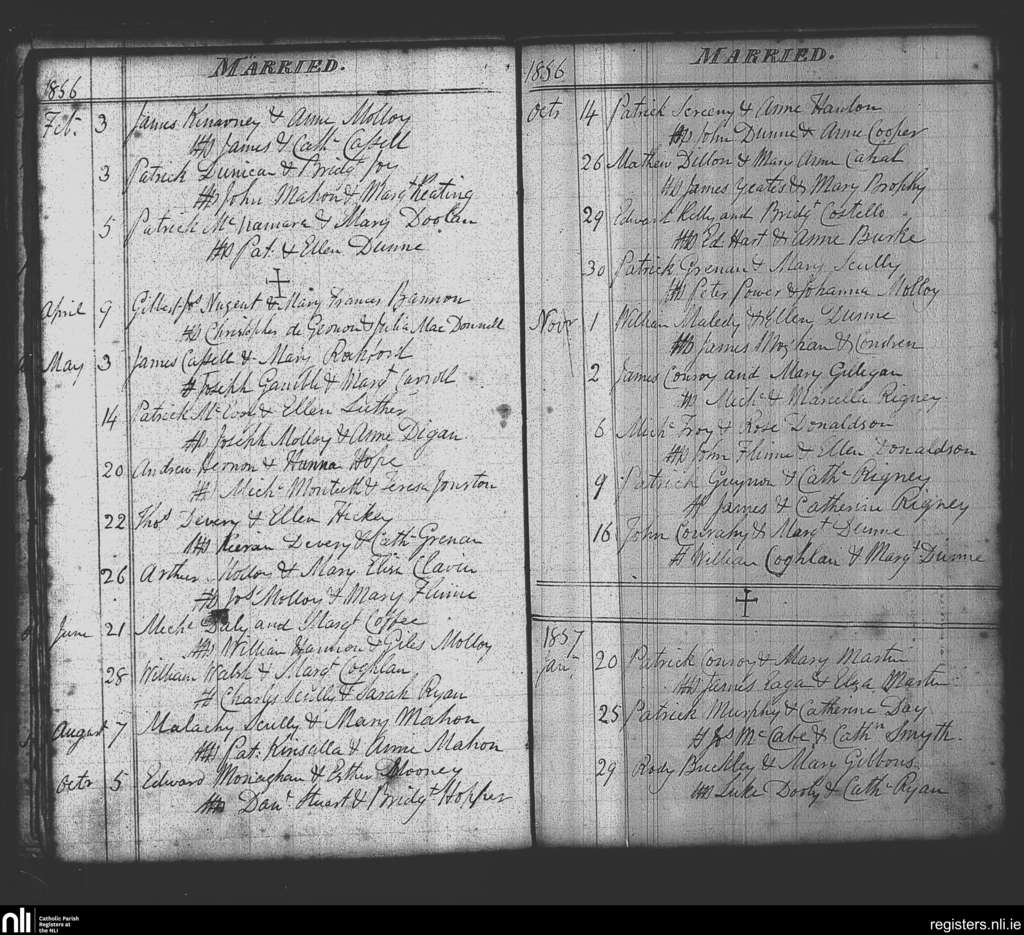 MARRIED.
1856
Feb. 3 James Kinarney & Anne Molloy
James & Cath. Cassell
3 Patrick Dunican & Bridgt Joy
John Mahon & Margt Keating
5 Patrick McNamara & Mary Doolan
Pat. & Ellen Dunne
April 9 Gilbert Jos Nugent & Mary Frances Bannon
Christopher de & Julia Mac Donnell
May 3 James Cassell & Mary Rockford
Joseph Gamble & Margt Carroll
14 Patrick & Ellen Luther
Joseph Molloy & Anne Digan
20 Andrew Hernon & Hanna Hope
Michl Monteith & Teresa Jonston
22 Thos Devery & Ellen Hickey
Kieran Devery & Cath. Grenan
26 Arthur Molloy & Mary Elisa Clavin
Jos Molloy & Mary Flinne
June 21 Michl Daly and Margt Coffee
William Hannon & Giles Molloy
28 William Walsh & Margt Coghlan
Charles Scully & Sarah Ryan
August 7 Malachy Scully & Mary Mahon
Pat. Kinsalla & Anne Mahon
Octr 5 Edward Monaghan & Esther Mooney
Danl Stuart & Bridgt Hopper
MARRIED.
1856
Octr 14 Patrick Screeny & Anne Hanlon
John Dunne & Anne Cooper
26 Mathew Dillon & Mary Anne Cahal
James Yeates & Mary Brophy
29 Edward Kelly and Bridgt Costello
Ed Hart & Anne Burke
30 Patrick Grenan & Mary Scully
Peter Power & Johanna Molloy
Novr 1 William Maledy & Ellen Dunne
James & Condren
2 James Conroy and Mary Gilegan
Michl & Marcella Rigney
6 Michl Troy & Rose Donaldson
John Flinne & Ellen Donaldson
9 Patrick Guynon & Cath. Rigney
James & Catherine Rigney
16 John Conrahy & Margt Dunne
William Coghlan & Margt Dunne
1857
Jany 20 Patrick Conroy & Mary Martin
James Eagan & Eliza Martin
25 Patrick Murphy & Catherine Day
Jos McCabe & Cathn Smyth
29 Rody Buckley & Mary Gibbons
Luke Dooly & Cath. Ryan
nli Catholic Parish
Registers at
the NLI
registers.nli.ie